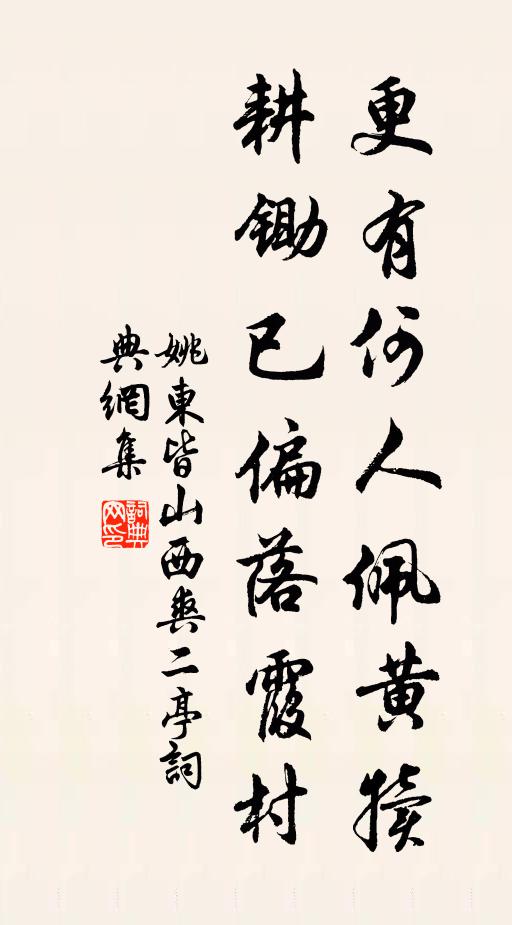 更有何人佩黄犢
耕鋤已偏落霞村
姚東皆山西爽二亭詞
典網集
詞典
网印